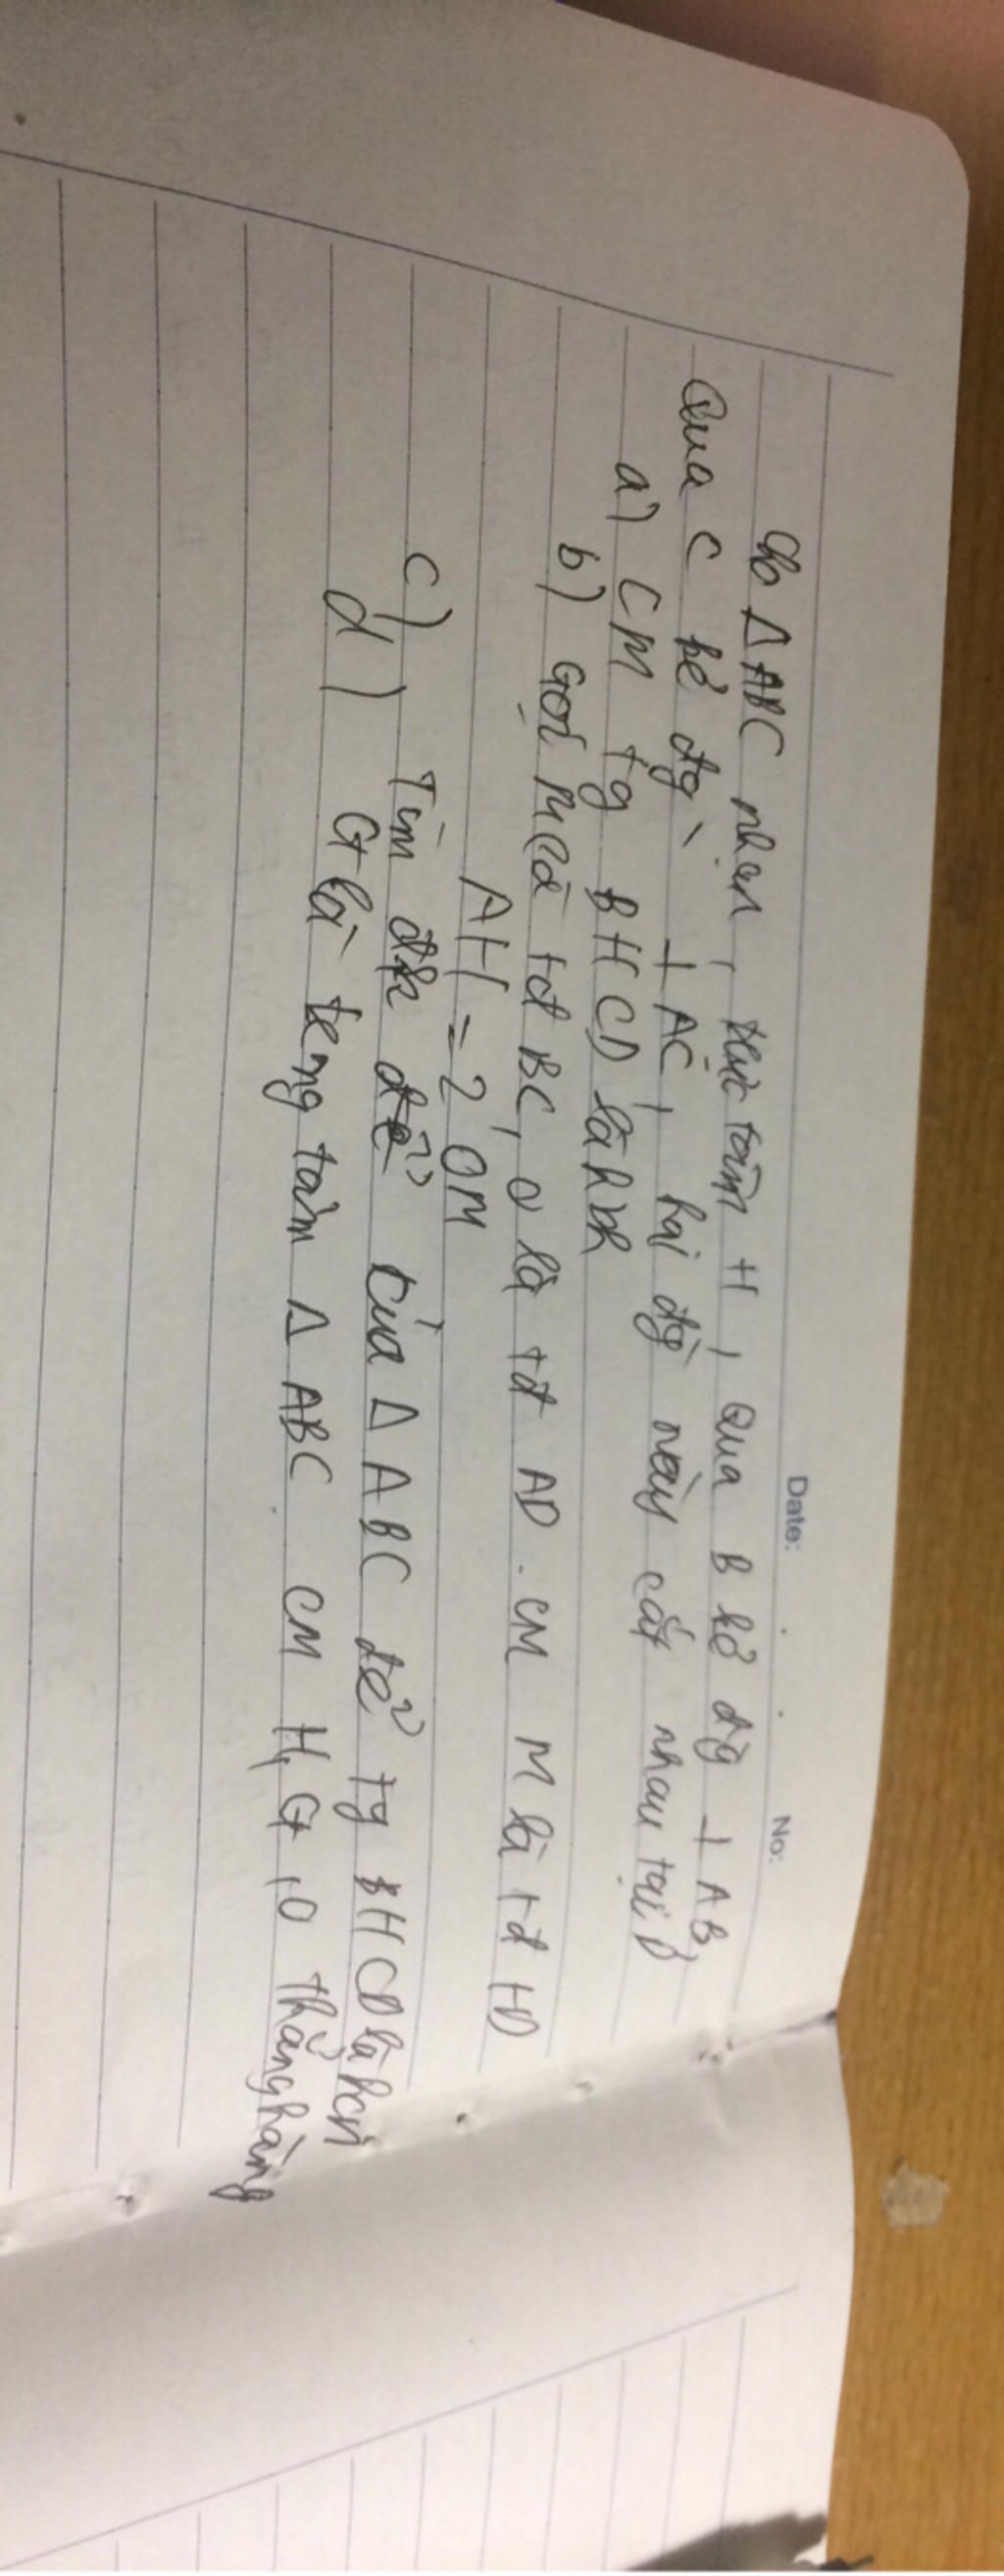 Date: No:
Cho Δ ABC nhọn, trực tâm H, Qua B kẻ đg ⊥ AB,
Qua C kẻ đg ⊥ AC, hai đg này cắt nhau tại D
a) CM tg BHCD là hbh
b) Gọi M là tđ BC, O là tđ AD. CM M là tđ HD
AH = 2 OM
c) Tìm đk để của Δ ABC để tg BHCD là hcn
d) G là trng tâm Δ ABC CM H, G, O thẳng hàng